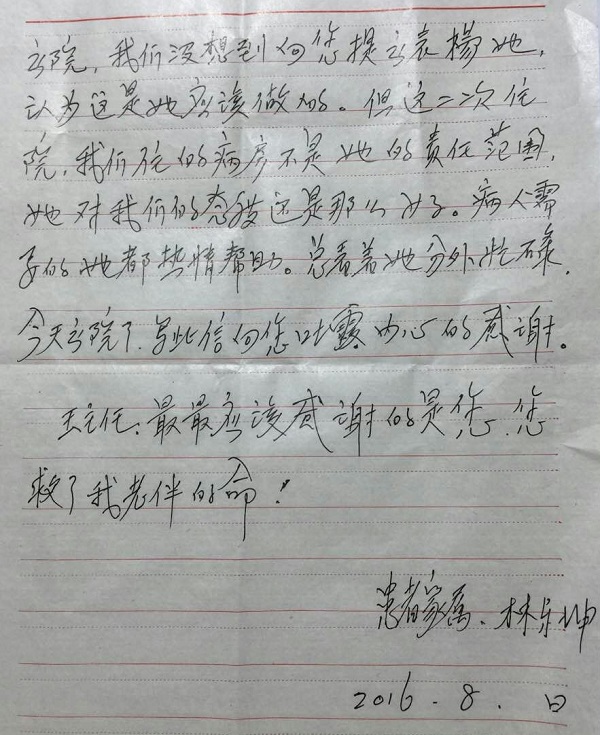 出院，我们没想到向您提出表扬她，
认为这是她应该做的。但这二次住
院，我们住的病房不是她的责任范围，
她对我们的态度还是那么好。病人需
的她都热情帮助。总看着她分外忙碌，
今天出院了，写此信向您吐露内心的感谢。
王主任，最最应该感谢的是您，您
救了我老伴的命！
患者家属、林乐坤
2016.8. 日